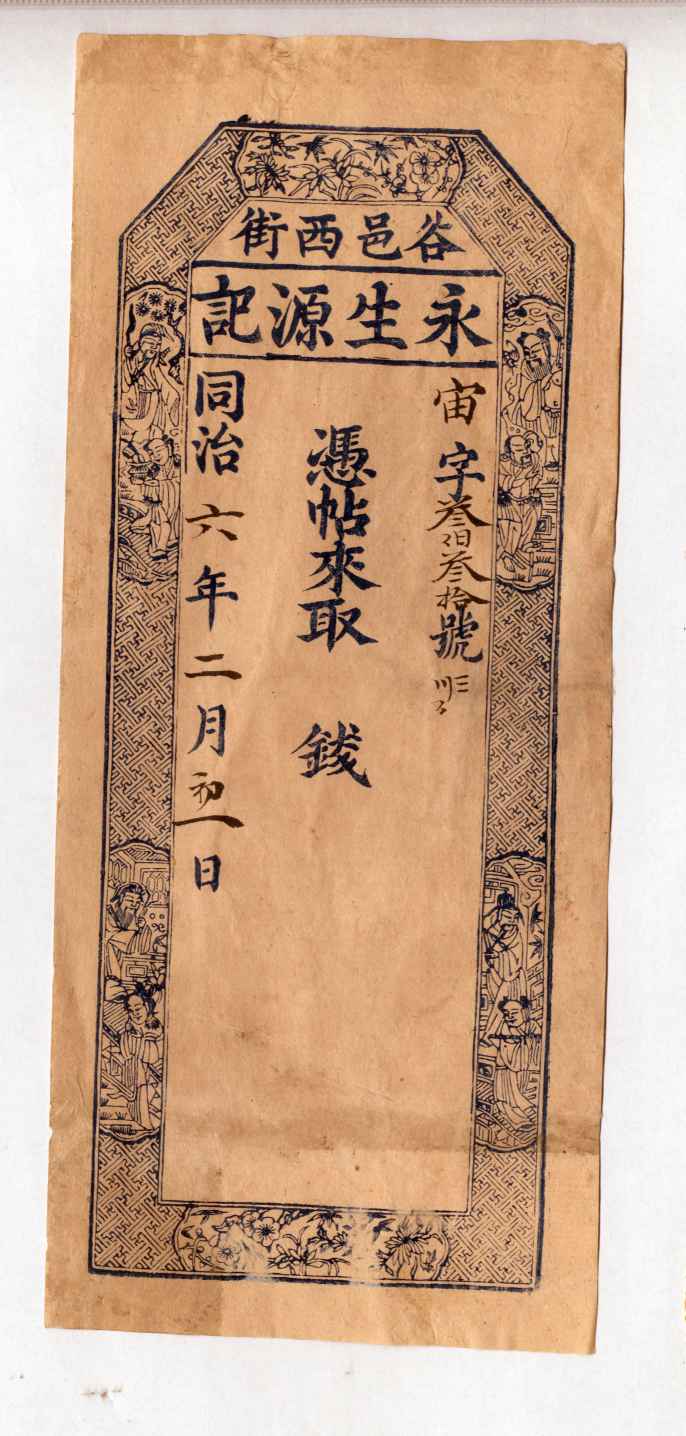 谷邑西街
永生源記
宙字叁佰叁拾號
憑帖來取 錢
同治六年二月初一日